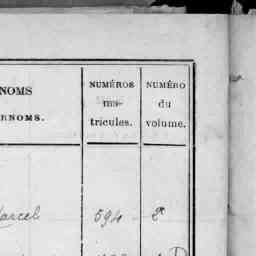 NOMS
RNOMS.
NUMÉROS
ma-
tricules.
NUMÉRO
du
volume.
Marcel 594 2